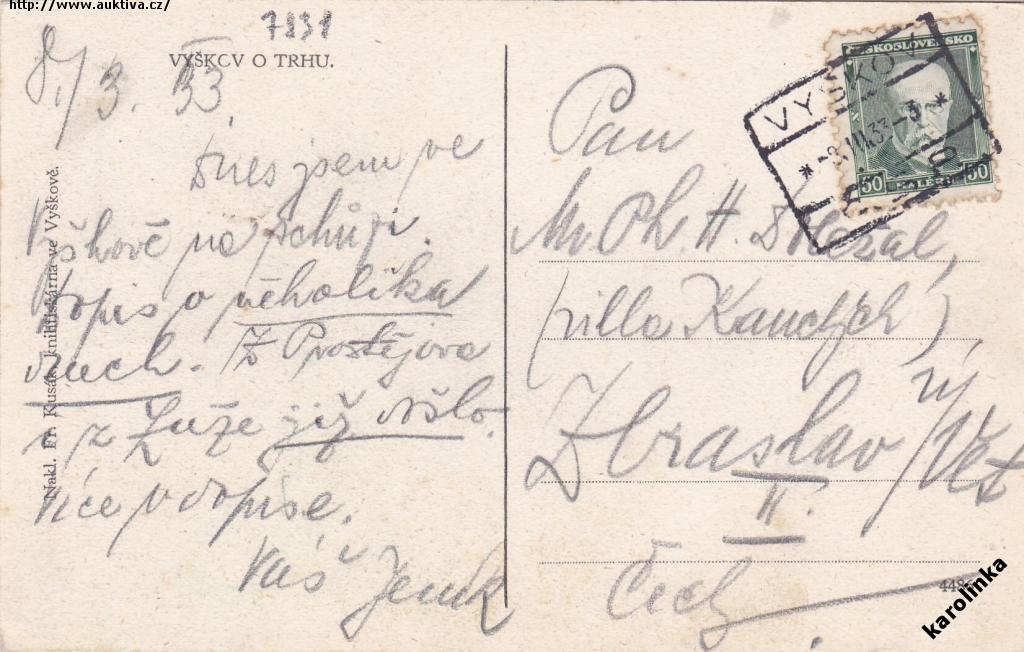 http://www.auktiva.cz/
7831
VYŠKOV O TRHU.
8/3. 33.
Dnes jsem ve
Vyškově na schůzi.
Dopis o několika
dnech. Z Prostějova
a z Luže již došlo.
Více v dopise.
Váš Jeník
Nakl. Fr. Kusák, knihtiskárna ve Vyškově.
ČESKOSLOVENSKO
50 HALÉŘŮ 50
VYŠKOV
* -8.III.33-8 *
Pan
Mr. Ph. H. Doležal,
(villa Kauckých)
Zbraslav n/Vlt
II.
Čechy
karolinka